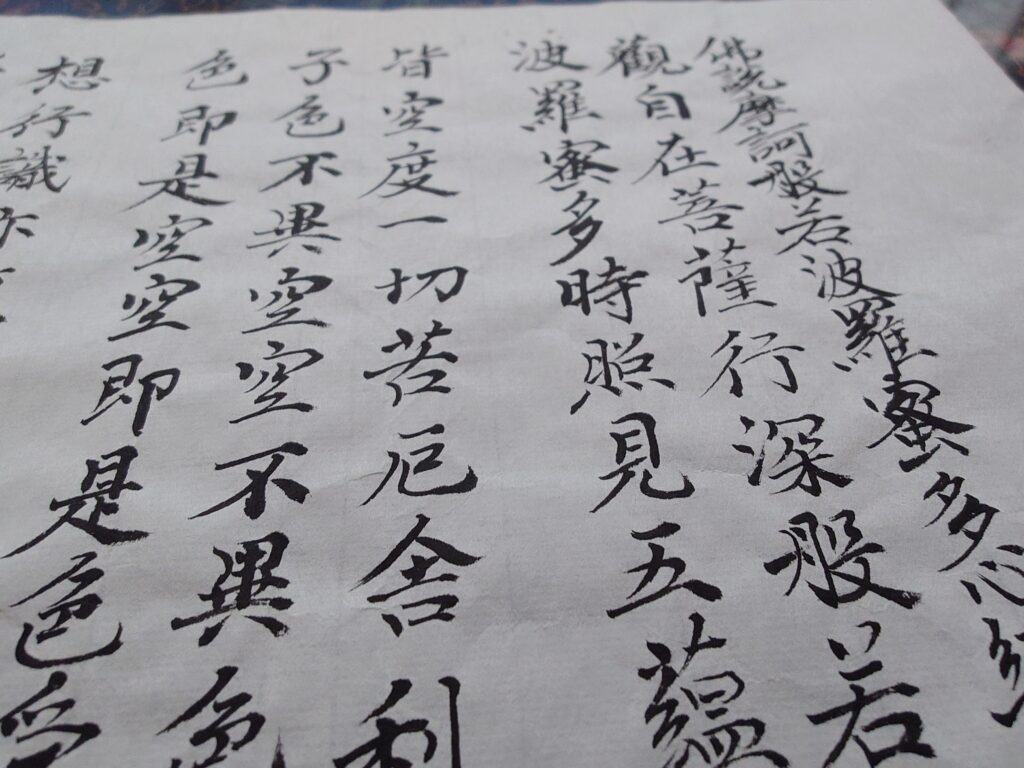 佛説摩訶般若波羅蜜多心經
觀自在菩薩行深般若
波羅蜜多時照見五蘊
皆空度一切苦厄舍利
子色不異空空不異色
色即是空空即是色受
想行識亦